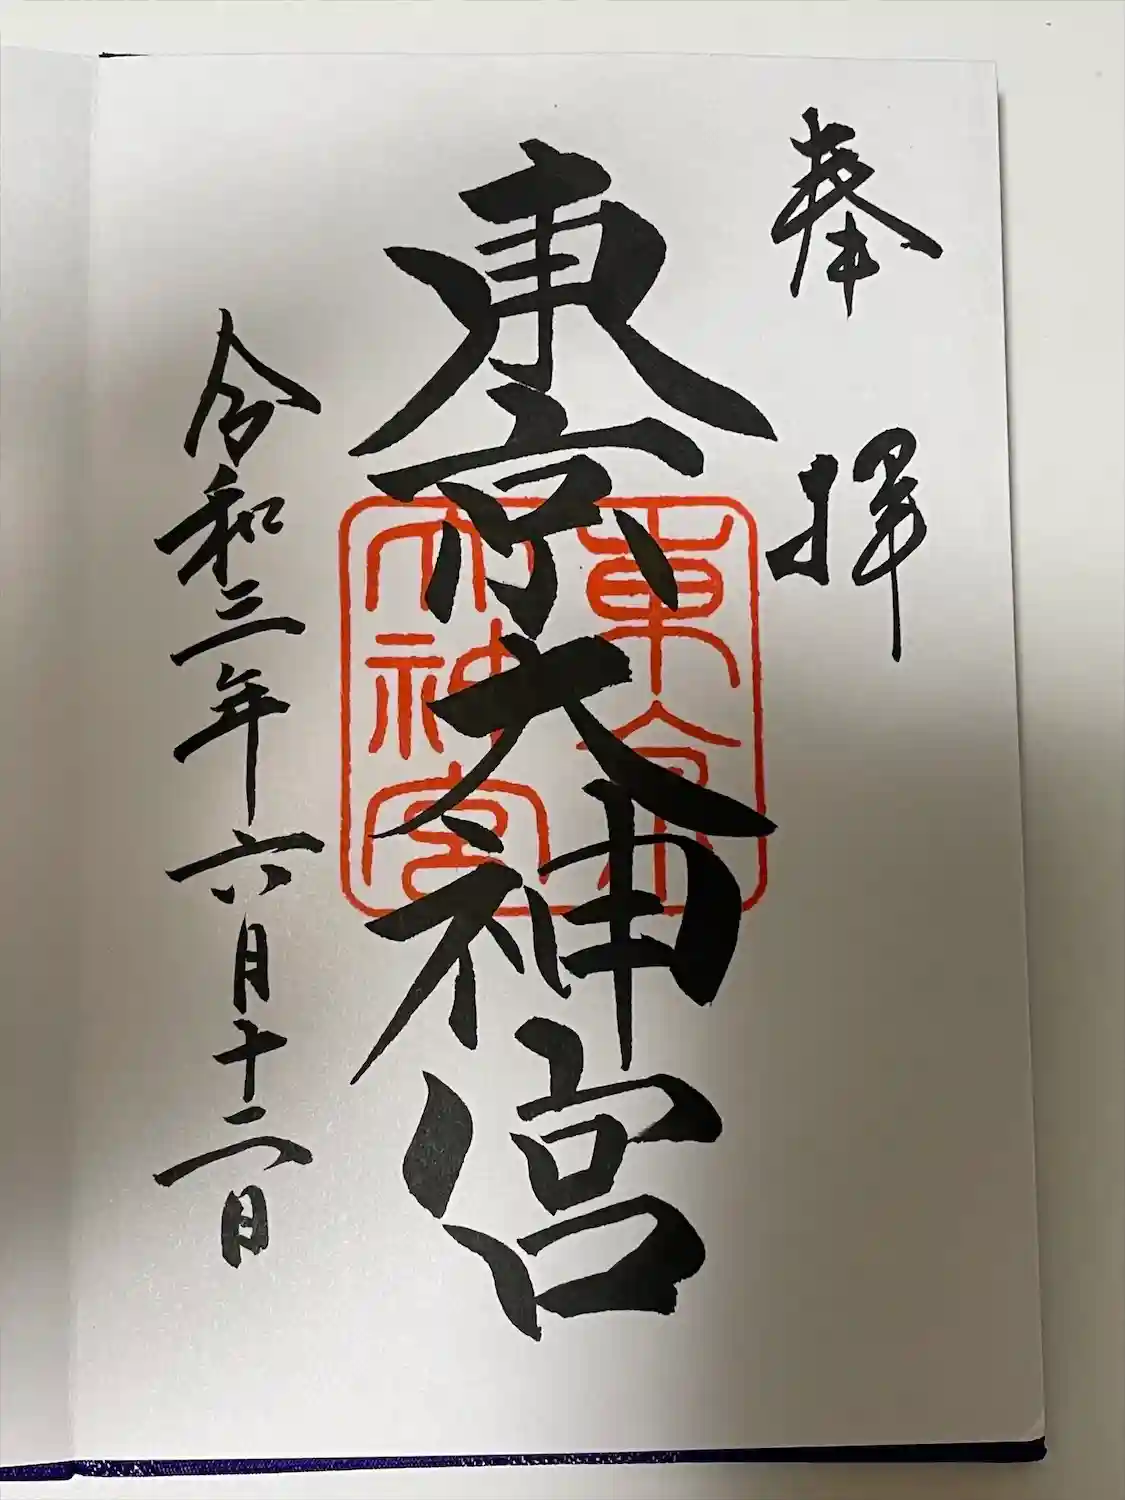 奉拝
東京大神宮
東京大神宮
令和三年六月十二日